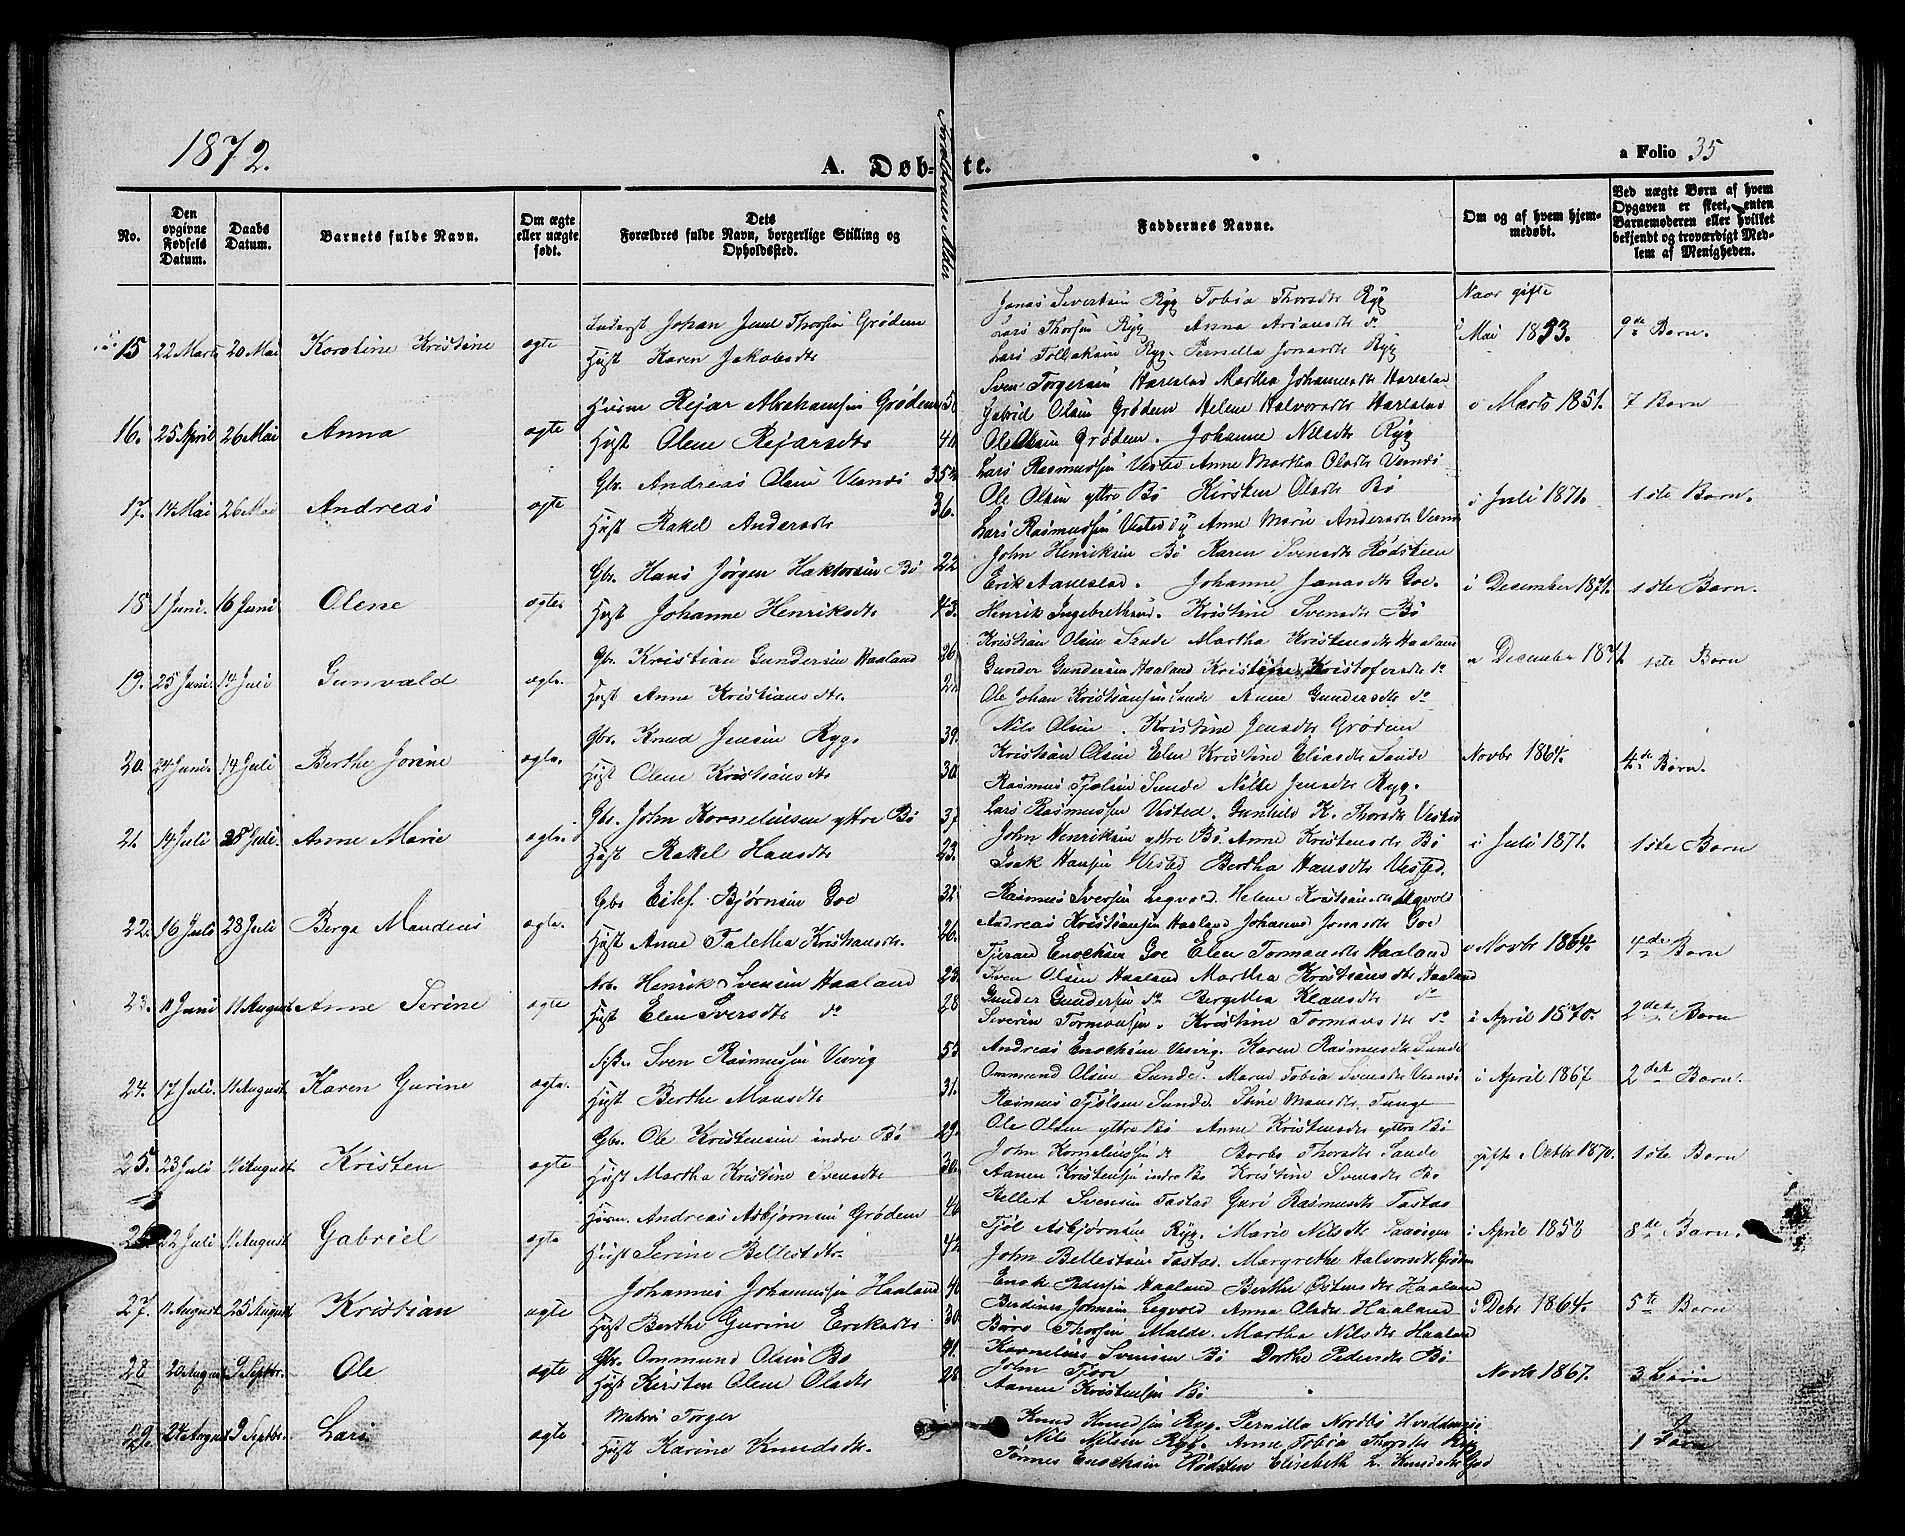 1872.
A. Døb-
te.
a Folio 35
Forældrenes Alder
No.
Den opgivne Fødsels Datum.
Daabs Datum.
Barnets fulde Navn.
Om ægte eller uægte født.
Dets Forældres fulde Navn, borgerlige Stilling og Opholdssted.
Faddernes Navne.
Om og af hvem hjemmedøbt.
Ved uægte Børn af hvem Opgaven er skeet, enten Barnemoderen eller hvilket bekjendt og troværdigt Medlem af Menigheden.
Naar gifte
15 22 Marts 20 Mai Karoline Kristine ægte
Johan Thorsen Grødem
Hust Karen Jakobsdtr
Jonas Sivertsen Ryg Tobia Thorsdtr Ryg
Lars Thorsen Ryg Anna Ariansdtr do
Lars Tollaksen Ryg. Pernilla Jonasdtr Ryg
Mai 1853. 9de Barn.
16. 25 April 26 Mai Anna ægte
Husm Rejar Abrahamsen Grødem 50
Hust Olene Rejarsdtr 40
Sven Torgersen Harestad Martha Johannesdtr Harestad
Gabriel Olsen Grødem Helene Halvorsdtr Harestad
Ole Olsen Grødem. Johanne Nilsdtr Ryg
i Marts 1851. 7 Barn
17. 14 Mai 26 Mai Andreas ægte
Gbr. Andreas Olsen Visnes 35
Hust Rakel Andersdtr 36.
Lars Rasmussen Vested Anne Martha Olsdtr Visnes
Ole Olsen yttre Bø Kirsten Olsdtr Bø
Lars Rasmussen Vested Anne Marie Andersdtr Visnes
i Juli 1871. 1ste Barn.
18 1 Juni. 16 Juni Olene ægte.
Gbr. Hans Jørgen Haktorsen Bø 22
Hust Johanne Henriksdtr 43.
John Henriksen Bø Karen Svensdtr Rødsteen
Erik Harestad. Johanne Jonasdtr Goe.
Henrik Ingebrethsen. Kristine Svensdtr Bø
i Desember 1871. 1ste Barn.
19. 25 Juni. 14 Juli Gunvald ægte.
Gbr. Kristian Gundersen Haaland 26
Hust Anne Kristiansdtr. 22
Kristian Olsen Sande Martha Kristensdtr Haaland
Gunder Gundersen Haaland Kristine Kristofersdtr do
Ole Johan Kristiansen Sande Anne Gundersdtr do
i December 1871 1ste Barn
20. 24 Juni. 14 Juli Berthe Jorine ægte.
Gbr. Knud Jensen Ryg. 39.
Hust Olene Kristiansdtr 30.
Nils Olsen. Kristine Jensdtr Grødem
Kristian Olsen Elen Kristine Eliasdtr Sande
Rasmus Tjølsen Sunde Nille Jensdtr Ryg.
Novbr 1864. 4de Barn.
21. 14 Juli 28 Juli. Anne Marie ægte.
Gbr. John Korneliusen yttre Bø 37
Hust Rakel Hansdtr 23.
Lars Rasmussen Vested. Gunhild K. Thorsdtr Vested
John Henriksen yttre Bø. Anne Kristensdtr Bø
Isak Hansen Vested Bertha Hansdtr Vested.
i Juli 1871. 1ste Barn
22. 16 Juli 28 Juli Berge Maudeus ægte.
Gbr Eilef Bjørnsen Goe 32
Hust Anne Talethea Kristiansdtr. 26.
Rasmus Iversen Legvold Helene Kristiansdtr Legvold
Andreas Kristiansen Haaland Johanne Jonasdtr Goe
Tjeran Enochsen Goe Elen Tormansdtr Haaland
i Novbr 1864. 4de Barn
23. 11 Juni 11 August Anne Serine ægte
Arb. Henrik Svensen Haaland 23.
Hust Elen Sversdtr do 28
Sven Olsen Haaland Martha Kristiansdtr Haaland
Gunder Gundersen do Bergitha Klausdtr do
Severin Tormansen. Kristine Tormansdtr do
i April 1870. 2det Barn
24. 17 Juli. 11 August Karen Gurine ægte.
Sven Rasmussen Viervig 55
Hust Berthe Maansdtr 31.
Andreas Enochsen Viervig. Karen Rasmusdtr Sunde
Ommund Olsen Sunde. Maren Tobia Svensdtr Visnes
Rasmus Tjølsen Sunde. Stine Maansdtr Tunge
i April 1867 2det Barn.
25. 23 Juli 11 August. Kristen ægte
Gbr. Ole Kristensen indre Bø 29.
Hust Martha Kristine Svensdtr 30.
Ole Olsen yttre Bø Anne Kristensdtr yttre Bø
John Korneliussen do Borbo Thorsdtr Sande
Aanen Kristensen indre Bø Kristine Svensdtr Bø
gifte i Octbr 1870. 1ste Barn
26. 22 Juli 11 August Gabriel ægte
Husm. Andreas Asbjørnsen Grødem 46
Hust Serine Bellestdtr. 42
Bellest Svensen Tastad Guri Rasmusdtr Tastad
Tjøl Asbjørnsen Ryg. Marie Nilsdtr
John Bellestsen Tastad. Margrethe Halvorsdtr Grødem
i April 1858 8de Barn.
27. 11 August 25 August Kristian ægte
Johannes Johannessen Haaland 40
Hust Berthe Gurine Eriksdtr 30.
Enok Pedersen Haaland Berthe Østensdtr Haaland
Berdines Johnsen Legvold Anna Olsdtr Haaland
Børre Thorsen Malde. Martha Nilsdtr Haaland
i Debr 1864. 5te Barn
28 20 August 9 Septbr. Ole ægte
Gbr. Ommund Olsen Bø 41.
Hust Kirsten Olene Olsdtr 28
Kornelius Svensen Bø Dorthe Pedersdtr Bø
John Fjore
Aanen Kristensen Bø
Novbr 1867. 3 Barn
29. 24 August 9 Septbr. Lars ægte
Matros Torger
Hust Karine Knudsdtr.
Knud Knudsen Ryg. Pernilla Nordbø
Nils Nilsen Ryg. Anne Tobia Thorsdtr Ryg
Tønnes Enochsen Rødsten Elisabeth L. Knudsdtr
1 Barn